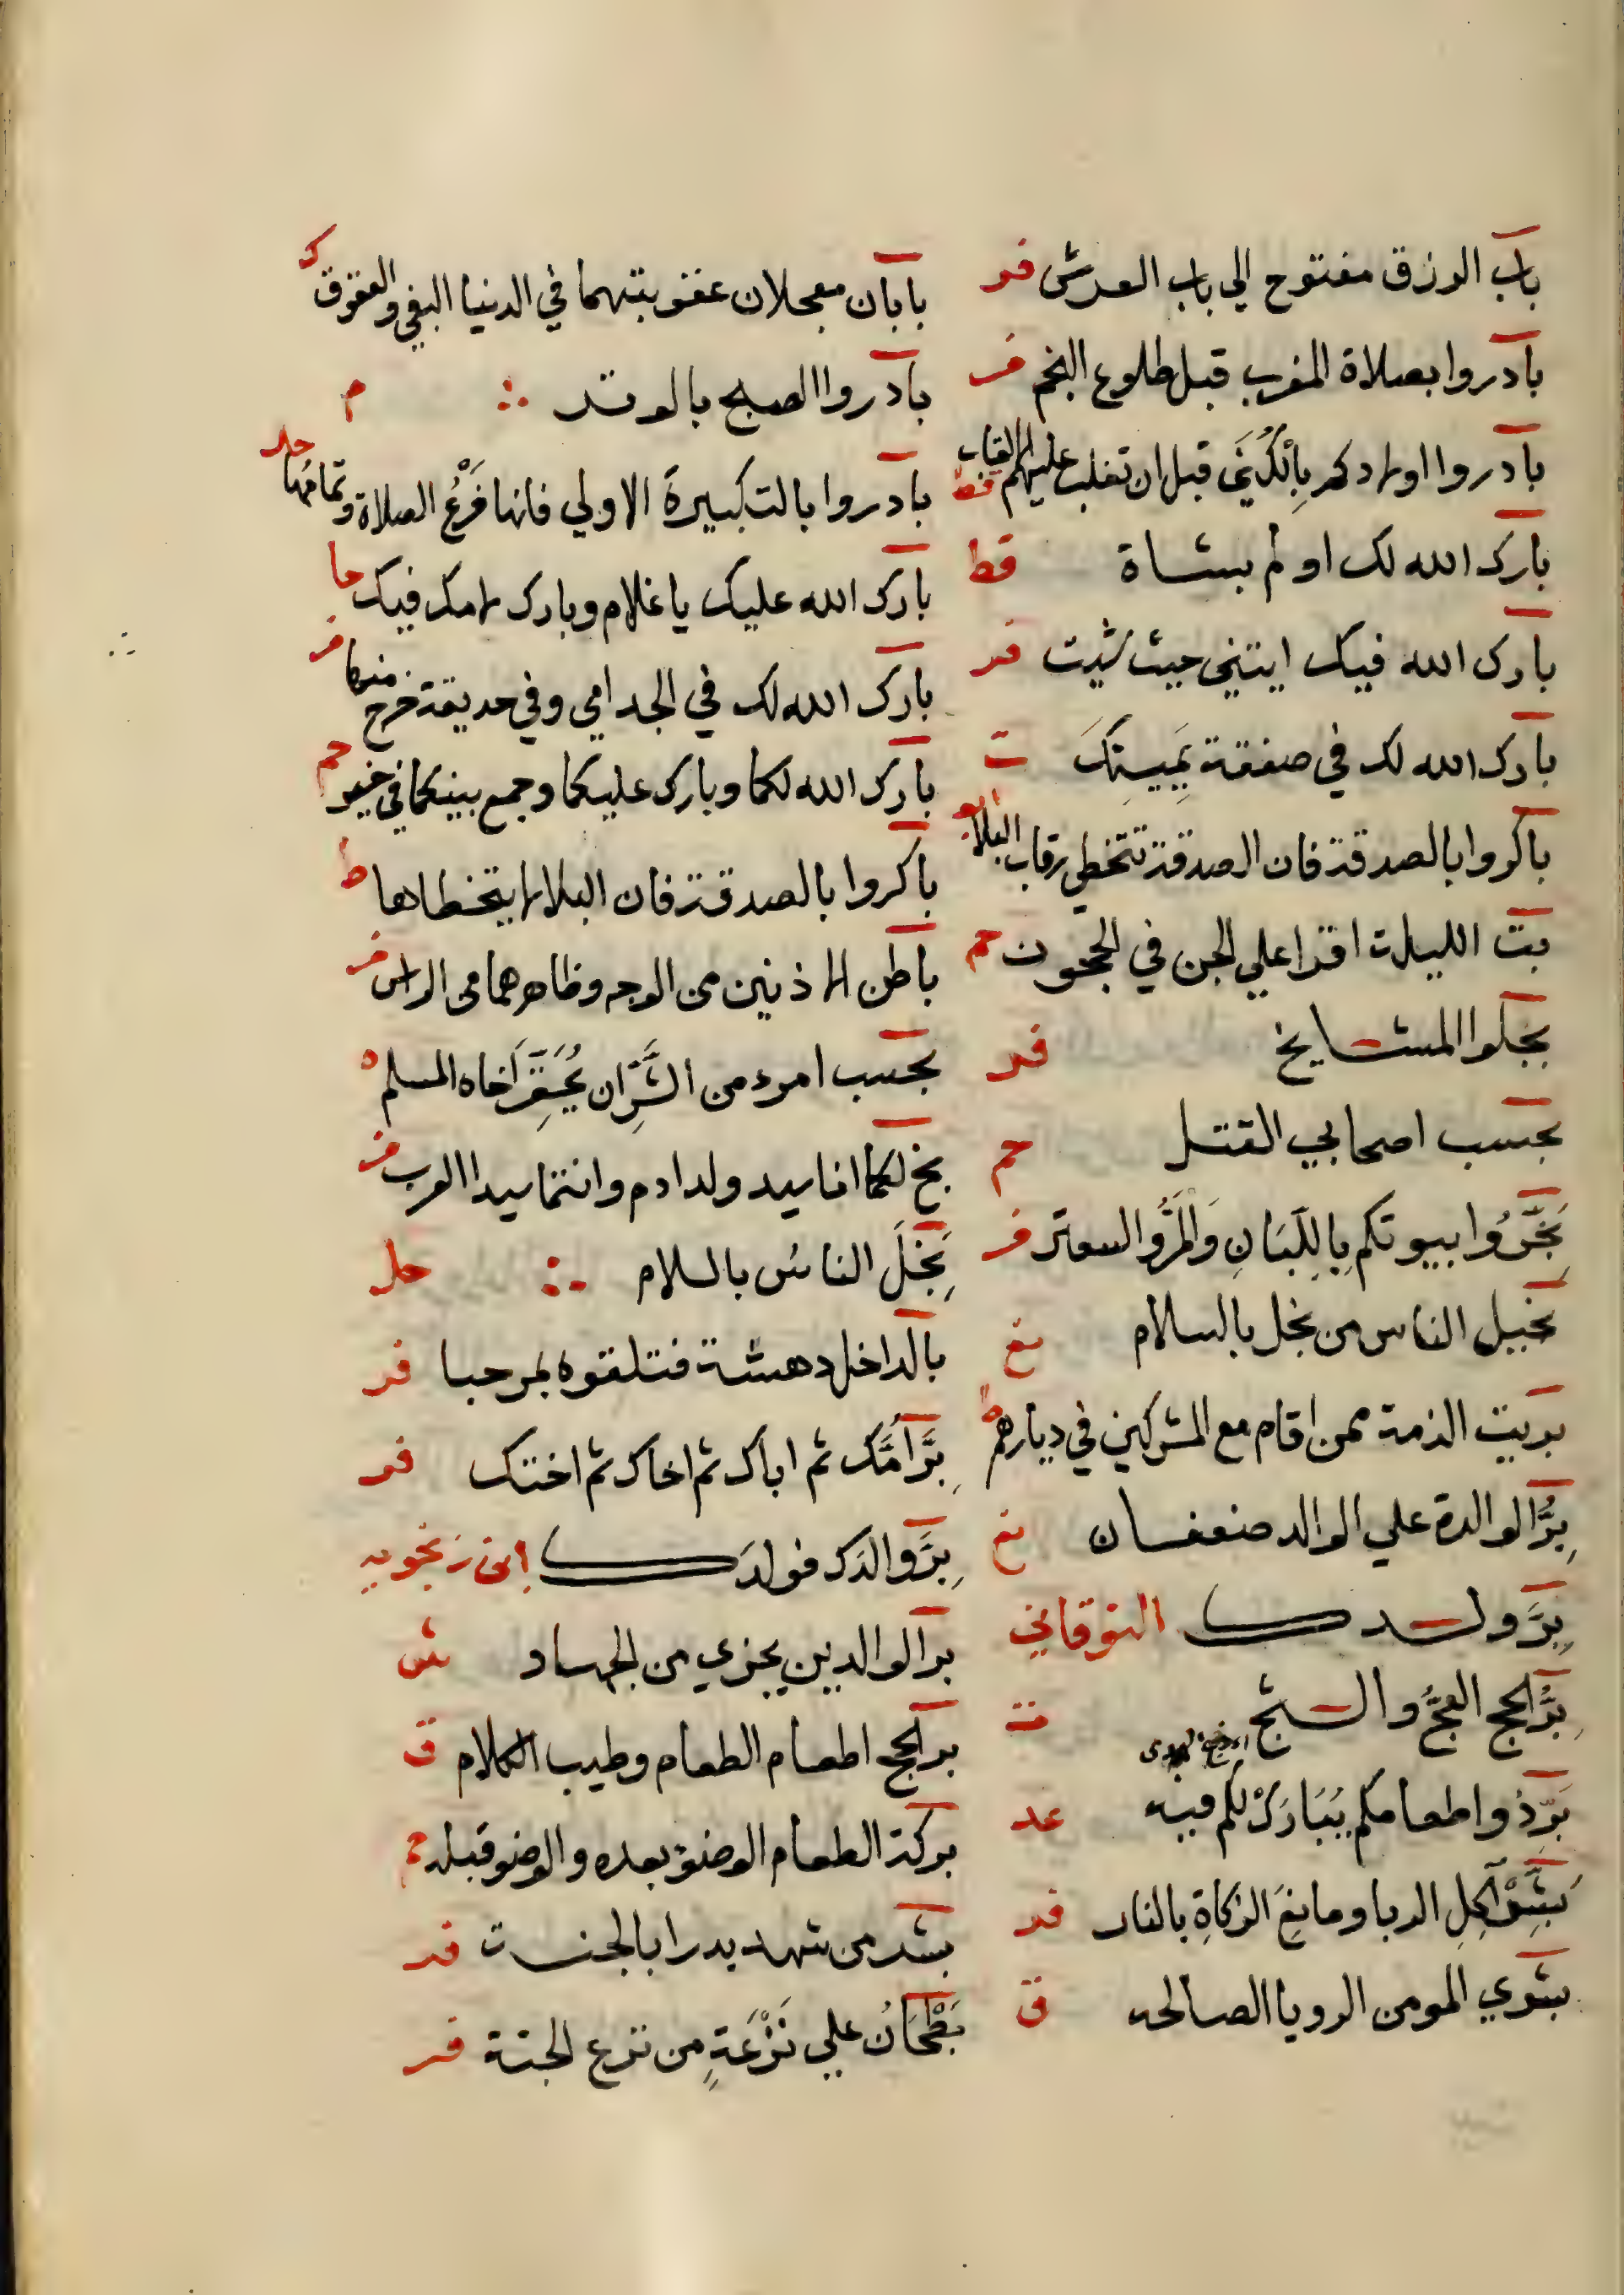 باب الرزق مفتوح الي باب العرش فر
بادروا بصلاة المغرب قبل طلوع النجم فر
بادروا اولادكم بِالْكُنَي قبل ان تغلب عليهم الالقاب قط
بارك الله لك اولم بشاة قط
بارك الله فيك ايتني حيث شيت فر
بارك الله لك في صفقة يَمِينِكَ ت
باكروا بالصدقة فان الصدقة تتخطي رقاب البلا
بت الليلة اقرا علي الجن في الحجون حم
بجلوا المشايخ فر
بحسب اصحابي القتل حم
بَخِّرُوا بيوتكم بِاللِّبَانِ وَالْمُرِّ والسعتر فر
بخيل الناس من بخل بالسلام نع
بريت الذمة ممن اقام مع المشركين في ديارهم ط
بِرُّ الوالدة علي الوالد ضعفان نع
بِرَّ ولدك النوقاني
بِرُّ الحج العَجُّ والثج ت
بَرِّدوا طعامكم يُبَارَكْ لكم فيه عد
بَشِّرْ آكِلِ الربا ومانِعَ الزكاةِ بالنار فر
بشري المومن الرويا الصالحه ق
بابان معجلان عقوبتهما في الدنيا البغي والعقوق ك
بادروا الصبح بالوتر م
بادروا بالتكبيرة الاولي فانها فَرْعُ الصلاة وتمامُها حل
بارك الله عليك يا غلام وبارك لامك فيك حا
بارك الله لك في الجدامي وفي حديقة خرج منها فر
بارك الله لكما وبارك عليكما وجمع بينكما في خير حم
باكروا بالصدقة فان البلا لا يتخطاها ط
باطن الاذنين من الوجه وظاهرهما من الراس فر
بحسب امرء من الشَّرِّ ان يُحَقِّرَ اَخاه المسلم ه
بخ لكما انا سيد ولد ادم وانتما سيدا العرب فر
بَخِلَ الناسُ بالسلام حل
بالداخل دهشة فتلقوه بمرحبا فر
بِرَّ اُمَّك ثم اباك ثم اخاك ثم اختك فر
بِرَّ والدَك فولدَك ابن زنجويه
بر الوالدين يجزي من الجهاد ش
بر الحج اطعام الطعام وطيب الكلام ق
بركة الطعام الوضؤ بعده والوضو قبله حم
بشر من شهد بدرا بالجنة فر
بَطْحَانُ علي نَزْعَةٍ من نزع الجنة فر